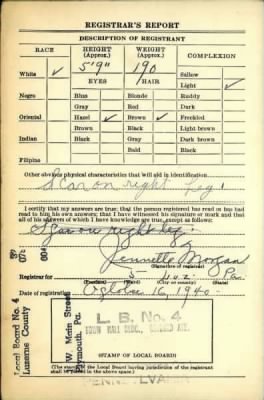 REGISTRAR'S REPORT
DESCRIPTION OF REGISTRANT
RACE HEIGHT (Approx.) WEIGHT (Approx.) COMPLEXION
5'9" 190
White ✓ EYES HAIR Sallow
Light ✓
Negro Blue Blonde Ruddy
Gray Red Dark
Oriental Hazel ✓ Brown ✓ Freckled
Brown Black Light brown
Indian Black Gray Dark brown
Bald Black
Filipino
Other obvious physical characteristics that will aid in identification
Scar on right Leg!
I certify that my answers are true; that the person registered has read or has had
read to him his own answers; that I have witnessed his signature or mark and that
all of his answers of which I have knowledge are true, except as follows:
Scar on right leg
Morgan
(Signature of registrar)
Registrar for 5 Luz. Pa.
(Precinct) (Ward) (City or county) (State)
Date of registration October 16, 1940
Local Board No. 4
Luzerne County
W. Main Street
Plymouth, Pa.
L. B. No. 4
TOWN HALL BLDG.,
(STAMP OF LOCAL BOARD)
(The stamp of the Local Board having jurisdiction of the registrant
shall be placed in the above space.)